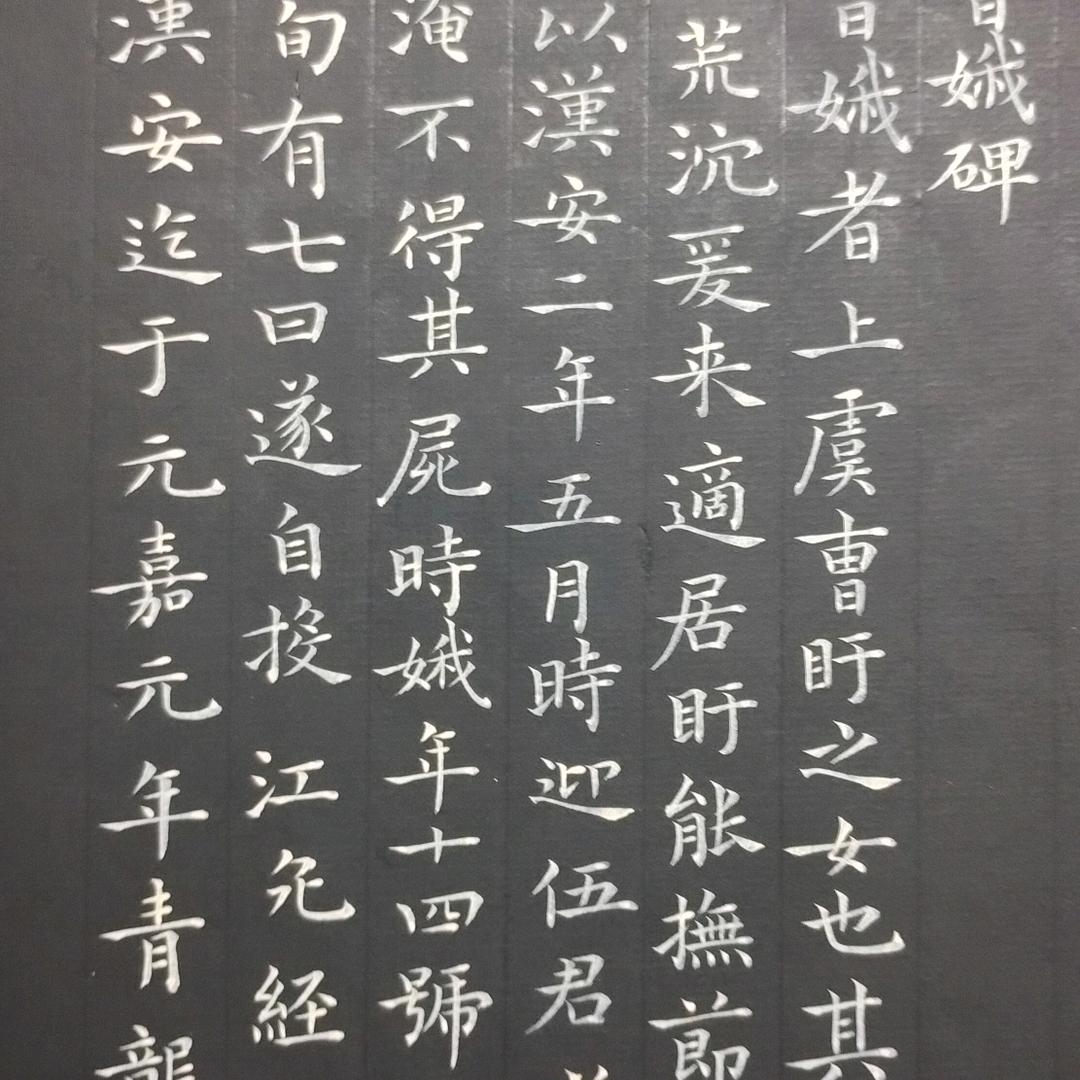 娥碑
娥者上虞曹盱之女也其
荒沉爰来適居盱能撫節
以漢安二年五月時迎伍君
淹不得其屍時娥年十四號
旬有七日遂自投江死経
漢安迄于元嘉元年青龍